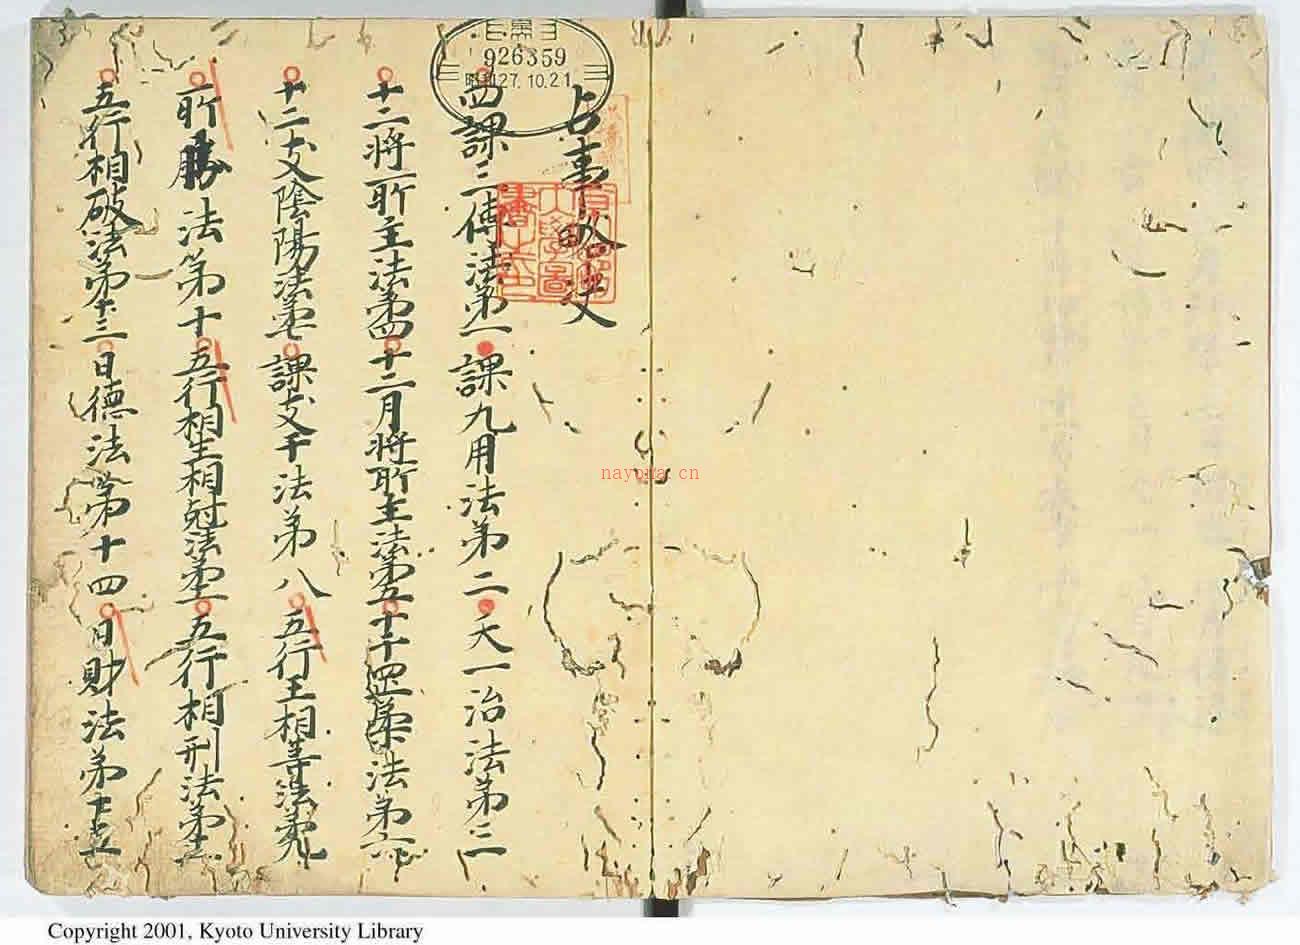 占事略决
四課三傳法第一 課九用法第二 天一治法第三
十二将所主法第四 十二月将所主法第五 十干罡柔法第六
十二支陰陽法第七 課支干法第八 五行王相等法第九
所勝法第十 五行相生相尅法第十一 五行相刑法第十二
五行相破法第十三 日德法第十四 日財法第十五
926359
昭和27.10.21
nayona.cn
Copyright 2001, Kyoto University Library